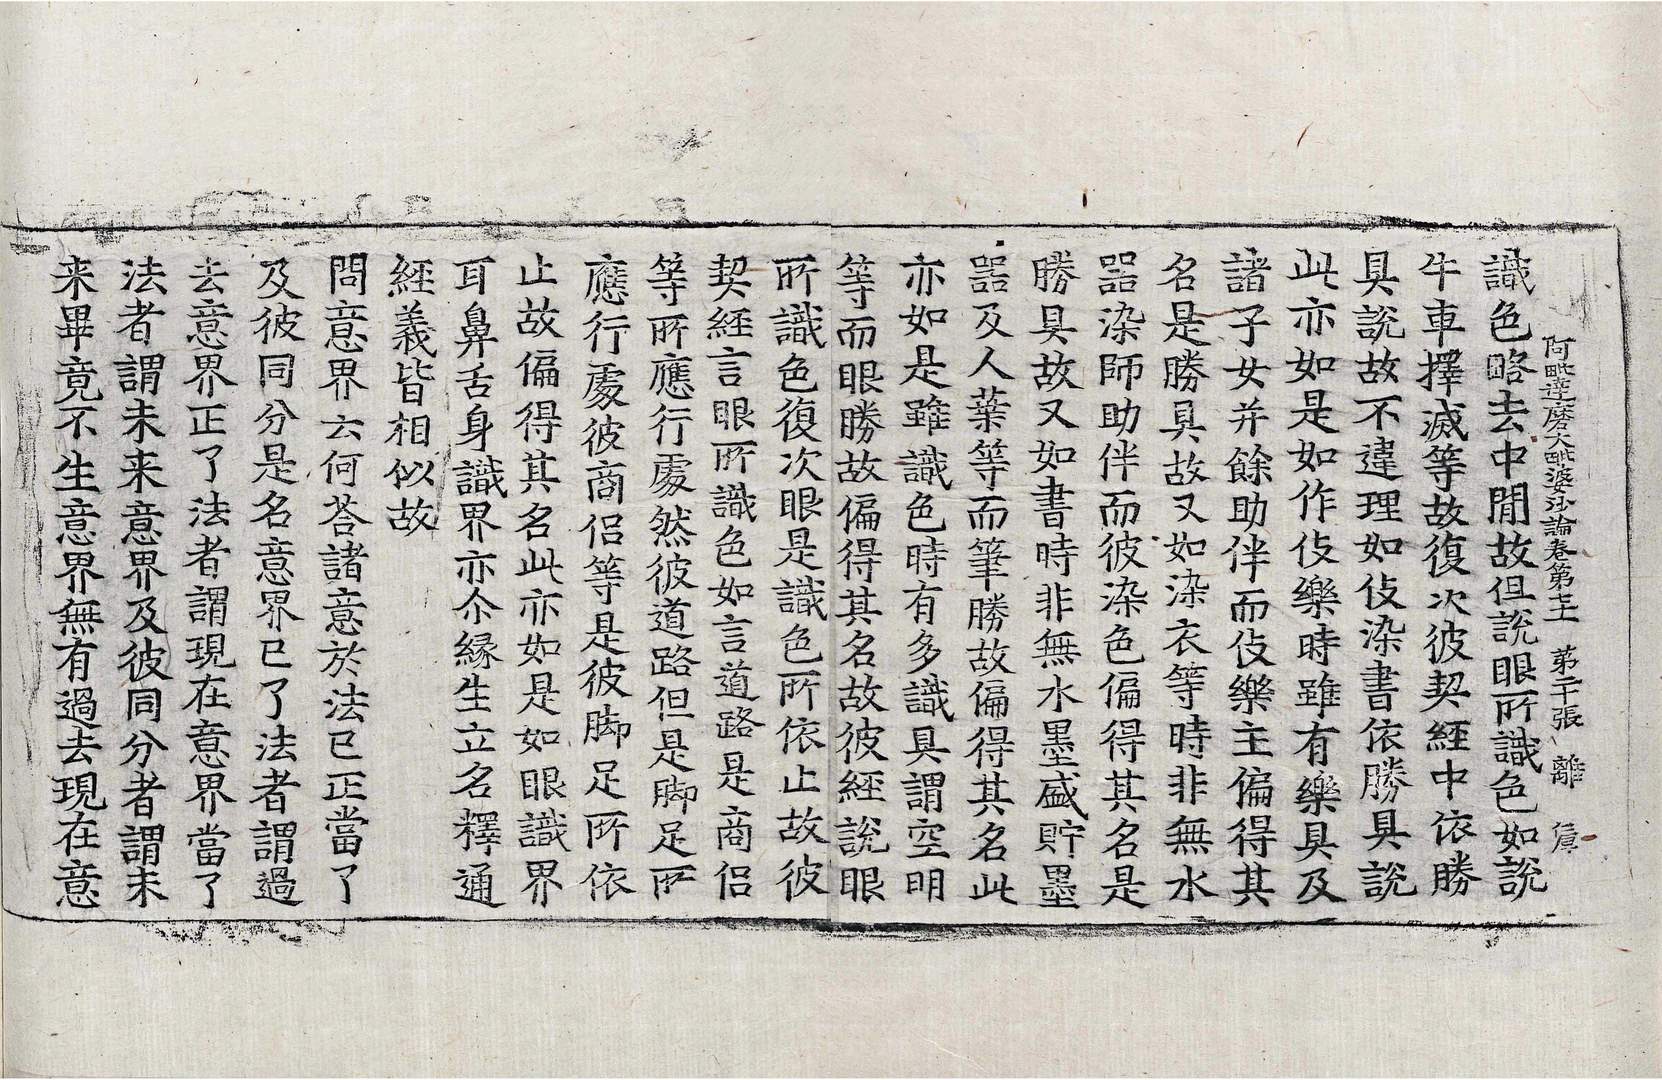 阿毗達磨大毗婆沙論卷第七十一 第二十張 離
識色略去中閒故但說眼所識色如說
牛車擇滅等故復次彼契經中依勝
具說故不違理如伎染書依勝具說
此亦如是如作伎樂時雖有樂具及
諸子女并餘助伴而伎樂主偏得其
名是勝具故又如染衣等時非無水
器染師助伴而彼染色偏得其名是
勝具故又如書時非無水墨盛貯墨
器及人葉等而筆勝故偏得其名此
亦如是雖識色時有多識具謂空明
等而眼勝故偏得其名故彼經說眼
所識色復次眼是識色所依止故彼
契經言眼所識色如言道路是商侶
等所應行處然彼道路但是脚足所
應行處彼商侶等是彼脚足所依
止故偏得其名此亦如是如眼識界
耳鼻舌身識界亦尒緣生立名釋通
經義皆相似故
問意界云何荅諸意於法已正當了
及彼同分是名意界已了法者謂過
去意界正了法者謂現在意界當了
法者謂未来意界及彼同分者謂未
来畢竟不生意界無有過去現在意